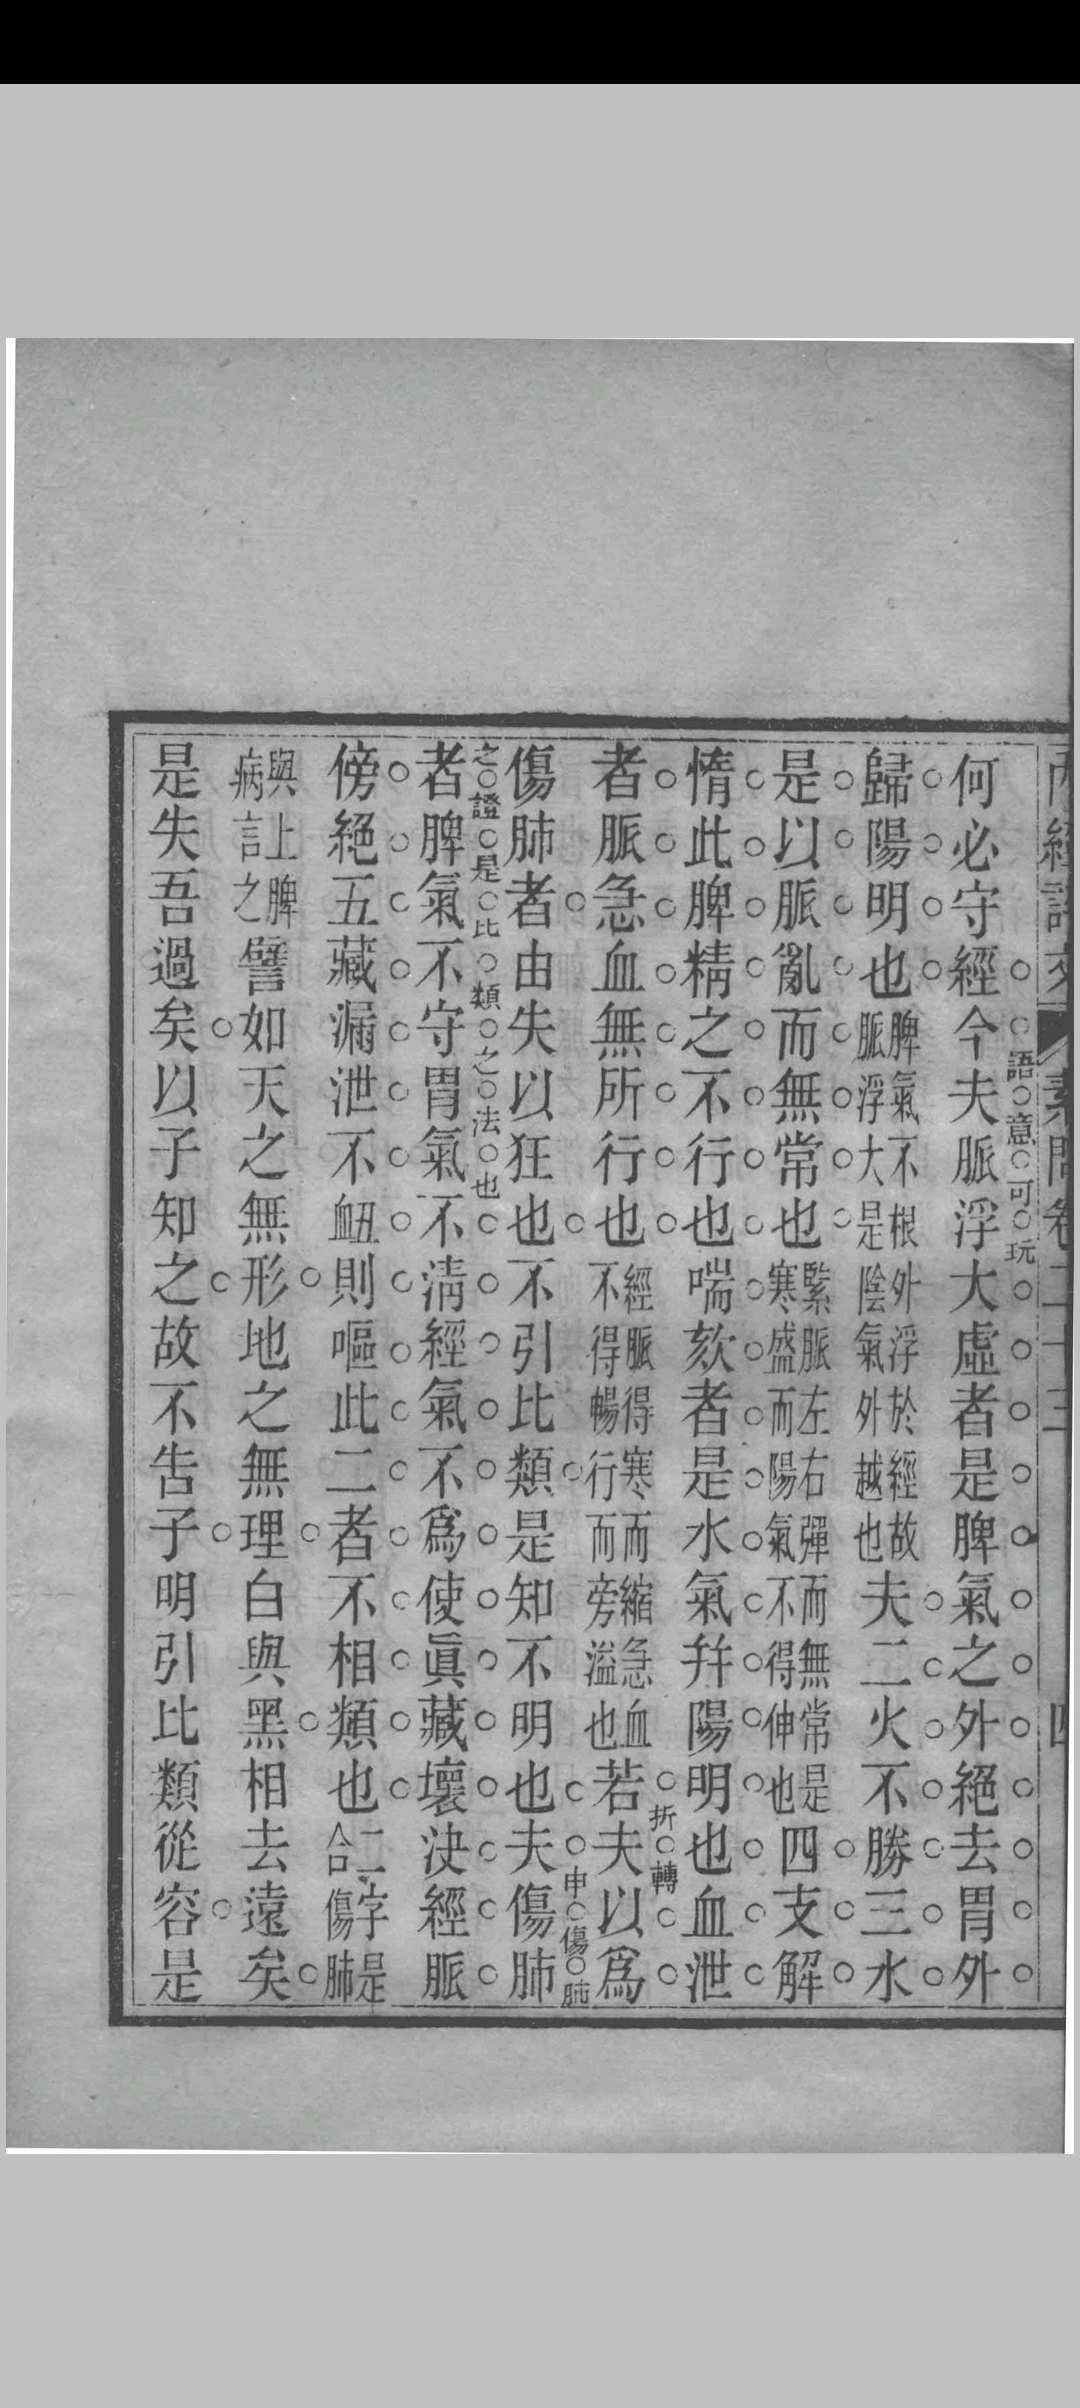 素問卷二十三
語意可玩
何必守經今夫脈浮大虛者是脾氣之外絕去胃外
歸陽明也脾氣不根外浮於經故脈浮大是陰氣外越也夫二火不勝三水
是以脈亂而無常也緊脈左右彈而無常是寒盛而陽氣不得伸也四支解
惰此脾精之不行也喘欬者是水氣幷陽明也血泄
折轉
者脈急血無所行也經脈得寒而縮急血不得暢行而旁溢也若夫以爲
申傷肺
傷肺者由失以狂也不引比類是知不明也夫傷肺
之證是比類之法也
者脾氣不守胃氣不淸經氣不爲使眞藏壞決經脈
傍絕五藏漏泄不衄則嘔此二者不相類也二字是合傷肺
與上脾病言之譬如天之無形地之無理白與黑相去遠矣
是失吾過矣以子知之故不告子明引比類從容是